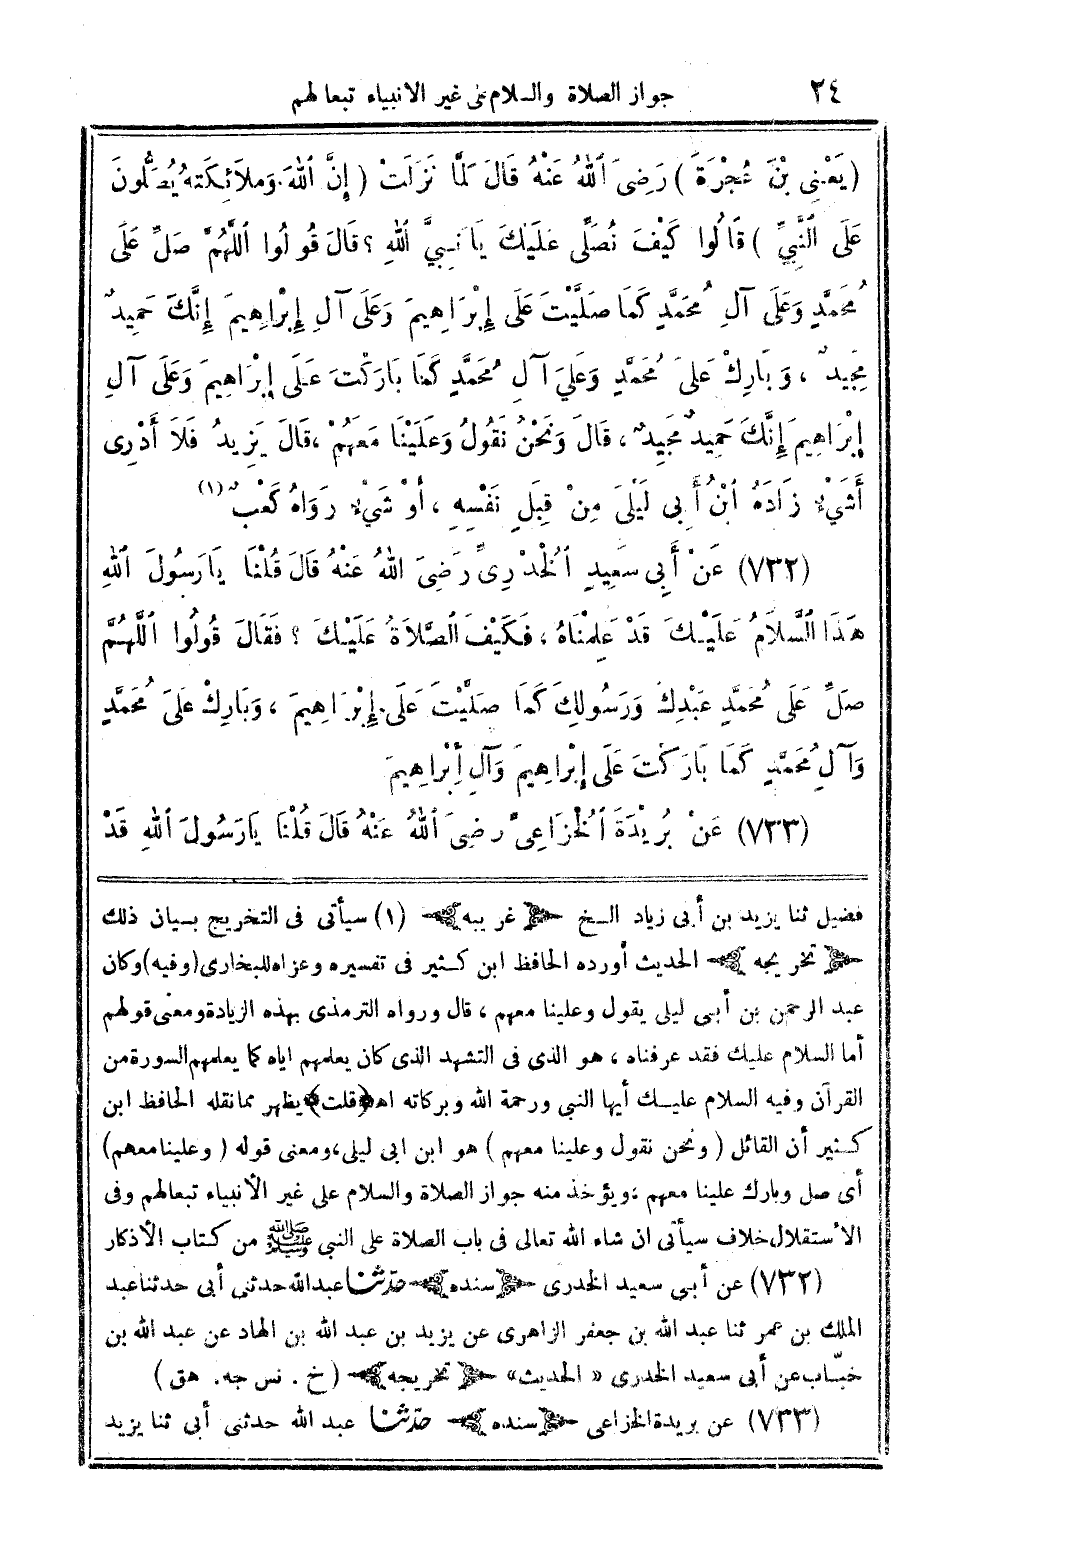 ٢٤ جواز الصلاة والسلام على غير الأنبياء تبعا لهم
(يَعْنِى بْنَ عُجْرَةَ) رَضِىَ ٱللهُ عَنْهُ قَالَ لَمَّا نَزَلَتْ (إِنَّ ٱللهَ وَمَلاَئِكَتَهُ يُصَلُّونَ
عَلَى النَّبِيِّ) قَالُوا كَيْفَ نُصَلِّى عَلَيْكَ يَا نَبِيَّ اللهِ؟ قَالَ قُولُوا اللَّهُمَّ صَلِّ عَلَى
مُحَمَّدٍ وَعَلَى آلِ مُحَمَّدٍ كَمَا صَلَّيْتَ عَلَى إِبْرَاهِيمَ وَعَلَى آلِ إِبْرَاهِيمَ إِنَّكَ حَمِيدٌ
مَجِيدٌ، وَبَارِكْ عَلَى مُحَمَّدٍ وَعَلَى آلِ مُحَمَّدٍ كَمَا بَارَكْتَ عَلَى إِبْرَاهِيمَ وَعَلَى آلِ
إِبْرَاهِيمَ إِنَّكَ حَمِيدٌ مَجِيدٌ، قَالَ وَنَحْنُ نَقُولُ وَعَلَيْنَا مَعَهُمْ، قَالَ يَزِيدُ فَلاَ أَدْرِى
أَشَيْءٌ زَادَهُ ابْنُ أَبِى لَيْلَى مِنْ قِبَلِ نَفْسِهِ، أَوْ شَيْءٌ رَوَاهُ كَعْبٌ (١)
(٧٣٢) عَنْ أَبِى سَعِيدٍ ٱلْخُدْرِىِّ رَضِىَ اللهُ عَنْهُ قَالَ قُلْنَا يَارَسُولَ ٱللهِ
هَذَا السَّلاَمُ عَلَيْكَ قَدْ عَلِمْنَاهُ، فَكَيْفَ الصَّلاَةُ عَلَيْكَ؟ فَقَالَ قُولُوا اللَّهُمَّ
صَلِّ عَلَى مُحَمَّدٍ عَبْدِكَ وَرَسُولِكَ كَمَا صَلَّيْتَ عَلَى إِبْرَاهِيمَ، وَبَارِكْ عَلَى مُحَمَّدٍ
وَآلِ مُحَمَّدٍ كَمَا بَارَكْتَ عَلَى إِبْرَاهِيمَ وَآلِ إِبْرَاهِيمَ
(٧٣٣) عَنْ بُرَيْدَةَ ٱلْخُزَاعِىِّ رَضِىَ ٱللهُ عَنْهُ قَالَ قُلْنَا يَارَسُولَ ٱللهِ قَدْ
فضيل ثنا يزيد بن أبى زياد الخ ﴿غريبه﴾ (١) سيأتى فى التخريج بيان ذلك
﴿تخريجه﴾ الحديث أورده الحافظ ابن كثير فى تفسيره وعزاه للبخارى (وفيه) وكان
عبد الرحمن بن أبى ليلى يقول وعلينا معهم، قال ورواه الترمذى بهذه الزيادة ومعنى قولهم
أما السلام عليك فقد عرفناه، هو الذى فى التشهد الذى كان يعلمهم اياه كما يعلمهم السورة من
القرآن وفيه السلام عليك أيها النبى ورحمة الله وبركاته اهـ ﴿قلت﴾ يظهر مما نقله الحافظ ابن
كثير أن القائل (ونحن نقول وعلينا معهم) هو ابن ابى ليلى، ومعنى قوله (وعلينا معهم)
أى صل وبارك علينا معهم، ويؤخذ منه جواز الصلاة والسلام على غير الأنبياء تبعا لهم وفى
الأستقلال خلاف سيأتى ان شاء الله تعالى فى باب الصلاة على النبى ﷺ من كتاب الأذكار
(٧٣٢) عن أبى سعيد الخدرى ﴿سنده﴾ حدّثنا عبد الله حدثنى أبى حدثنا عبد
الملك بن عمر ثنا عبد الله بن جعفر الزاهرى عن يزيد بن عبد الله بن الهاد عن عبد الله بن
خبّاب عن أبى سعيد الخدرى «الحديث» ﴿تخريجه﴾ (خ . نس جه . هق)
(٧٣٣) عن بريدة الخزاعى ﴿سنده﴾ حدّثنا عبد الله حدثنى أبى ثنا يزيد